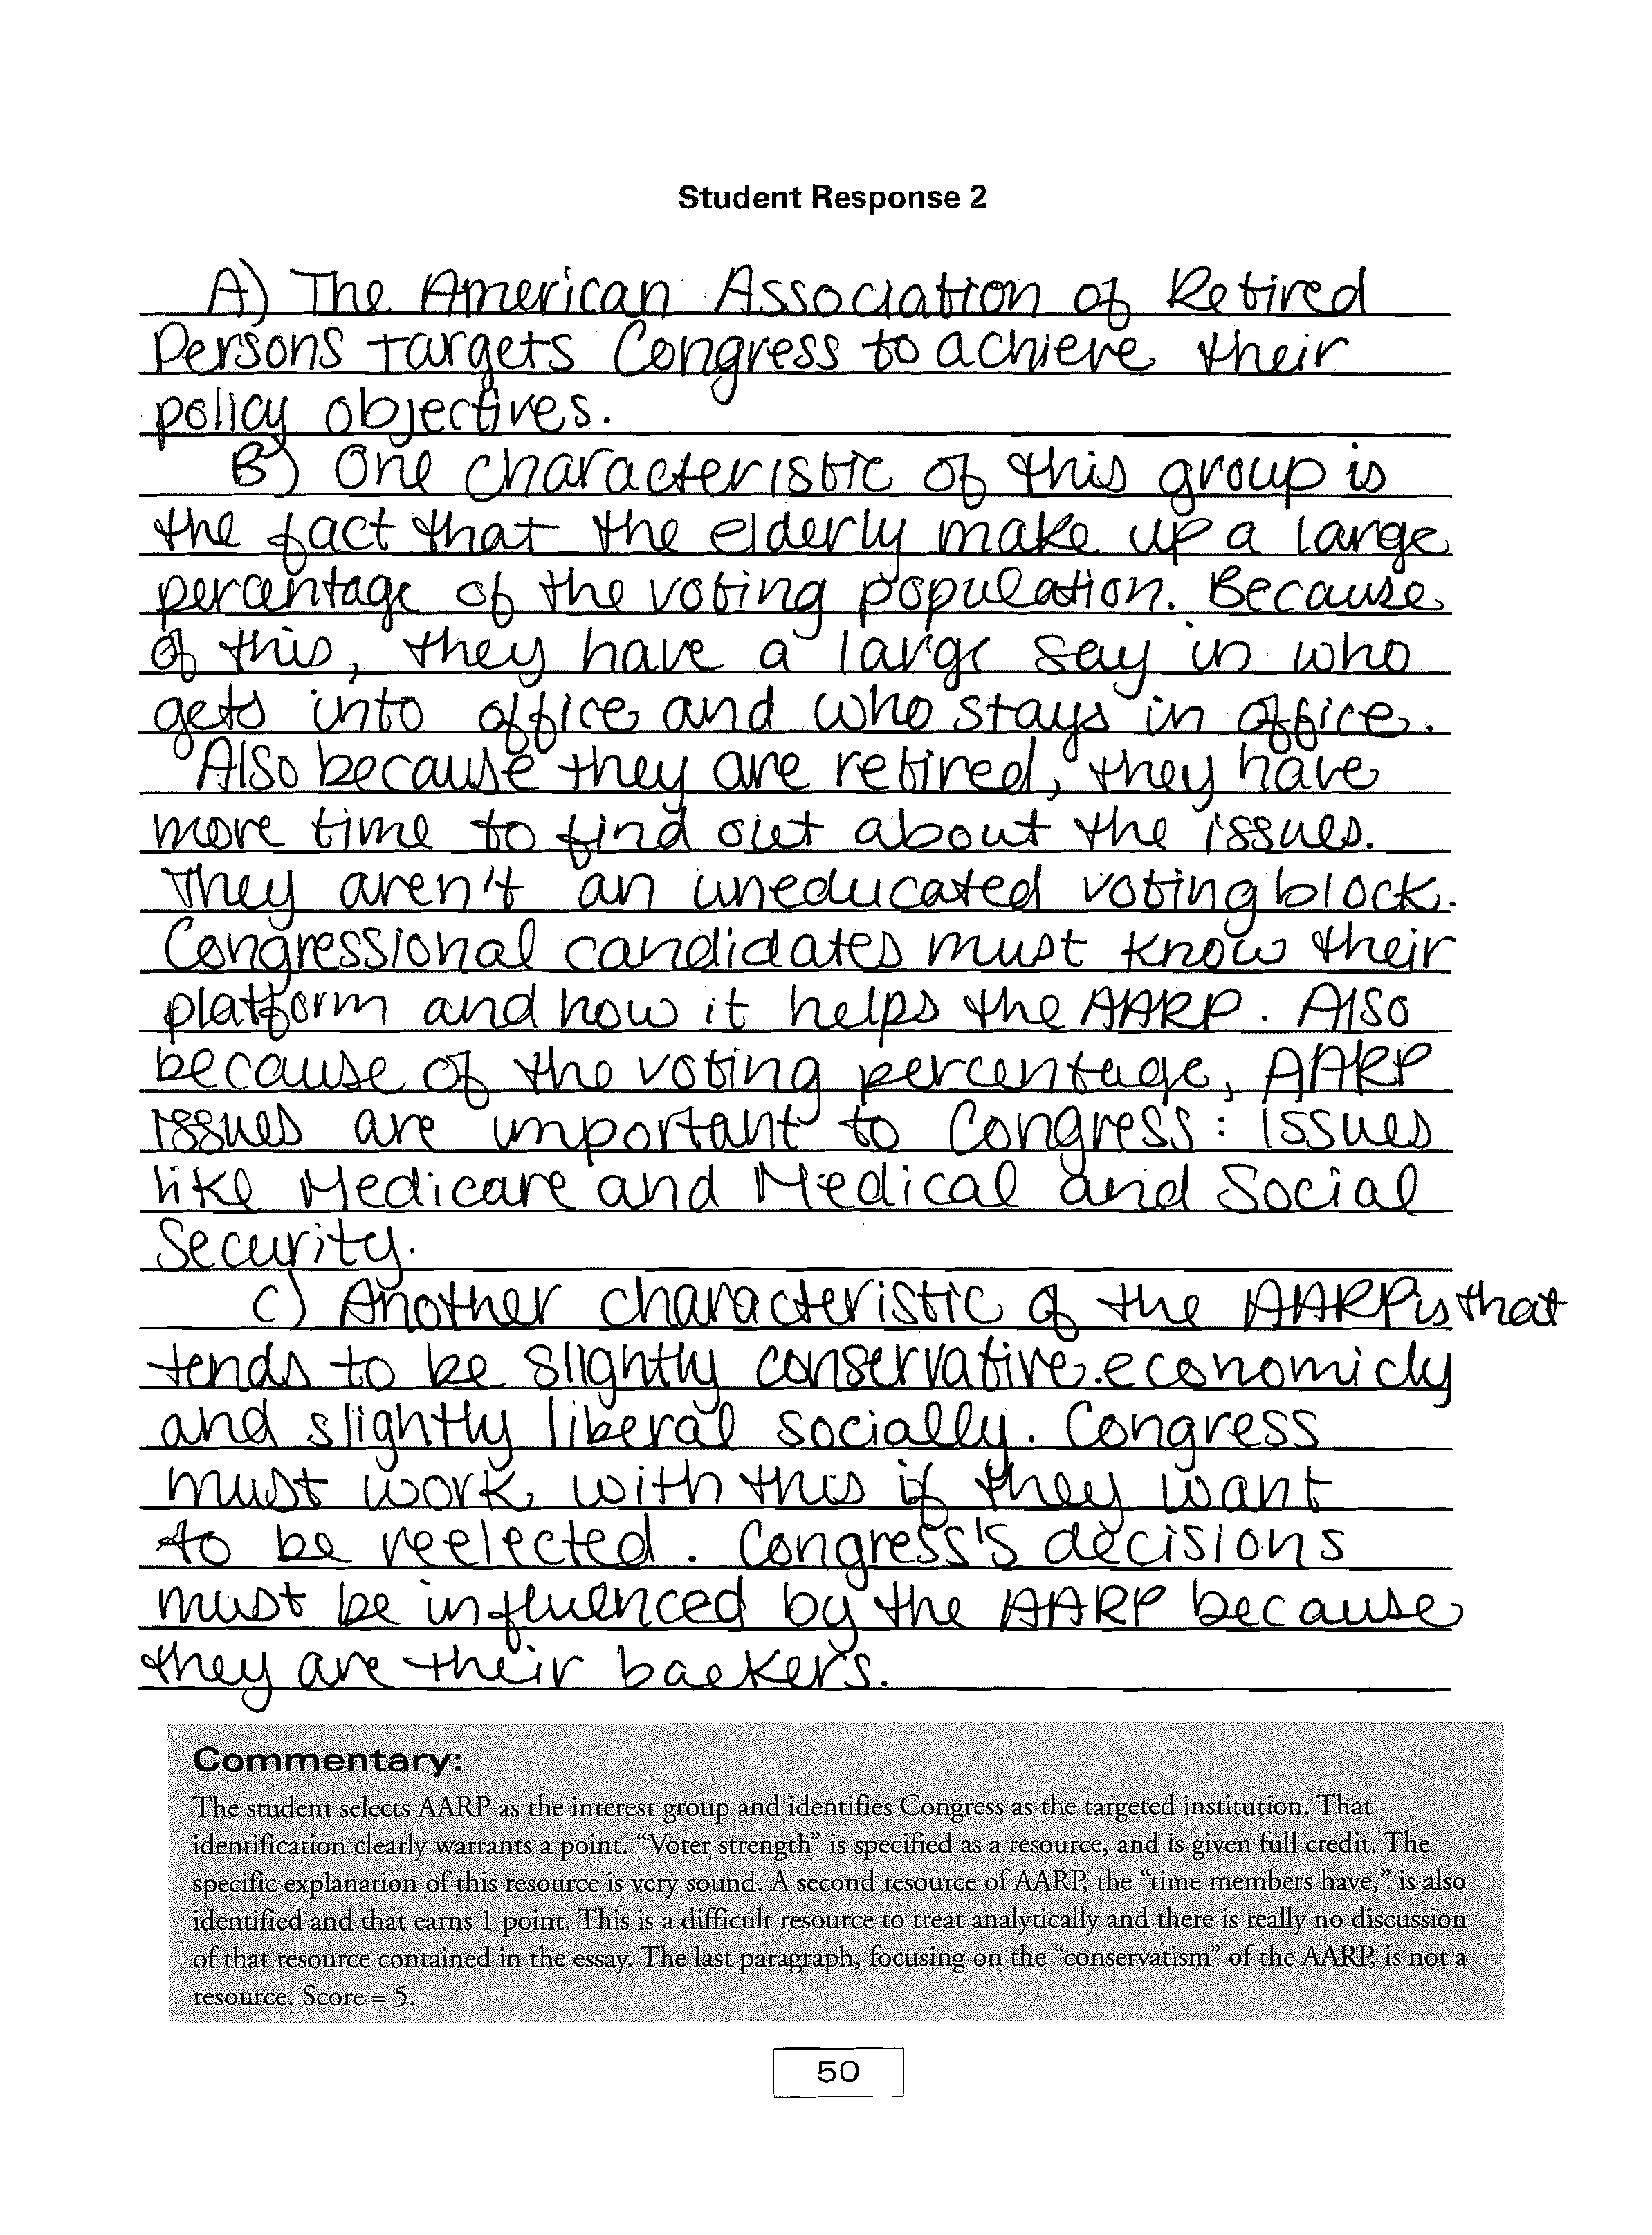 Student Response 2
A) The American Association of Retired
Persons targets Congress to achieve their
policy objectives.
B) One characteristic of this group is
the fact that the elderly make up a large
percentage of the voting population. Because
of this, they have a large say in who
gets into office and who stays in office.
Also because they are retired, they have
more time to find out about the issues.
They aren't an uneducated voting block.
Congressional candidates must know their
platform and how it helps the AARP. Also
because of the voting percentage, AARP
issues are important to Congress: issues
like Medicare and Medical and Social
Security.
C) Another characteristic of the AARP is that
tends to be slightly conservative economicly
and slightly liberal socially. Congress
must work with this if they want
to be reelected. Congress's decisions
must be influenced by the AARP because
they are their backers.
Commentary:
The student selects AARP as the interest group and identifies Congress as the targeted institution. That
identification clearly warrants a point. “Voter strength” is specified as a resource, and is given full credit. The
specific explanation of this resource is very sound. A second resource of AARP, the “time members have,” is also
identified and that earns 1 point. This is a difficult resource to treat analytically and there is really no discussion
of that resource contained in the essay. The last paragraph, focusing on the “conservatism” of the AARP, is not a
resource. Score = 5.
50